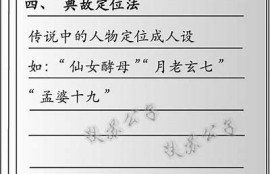 四、 典故定位法
传说中的人物定位成人设
如：“仙女酵母”“月老玄七”
“孟婆十九”
扶苏公子
扶苏公子